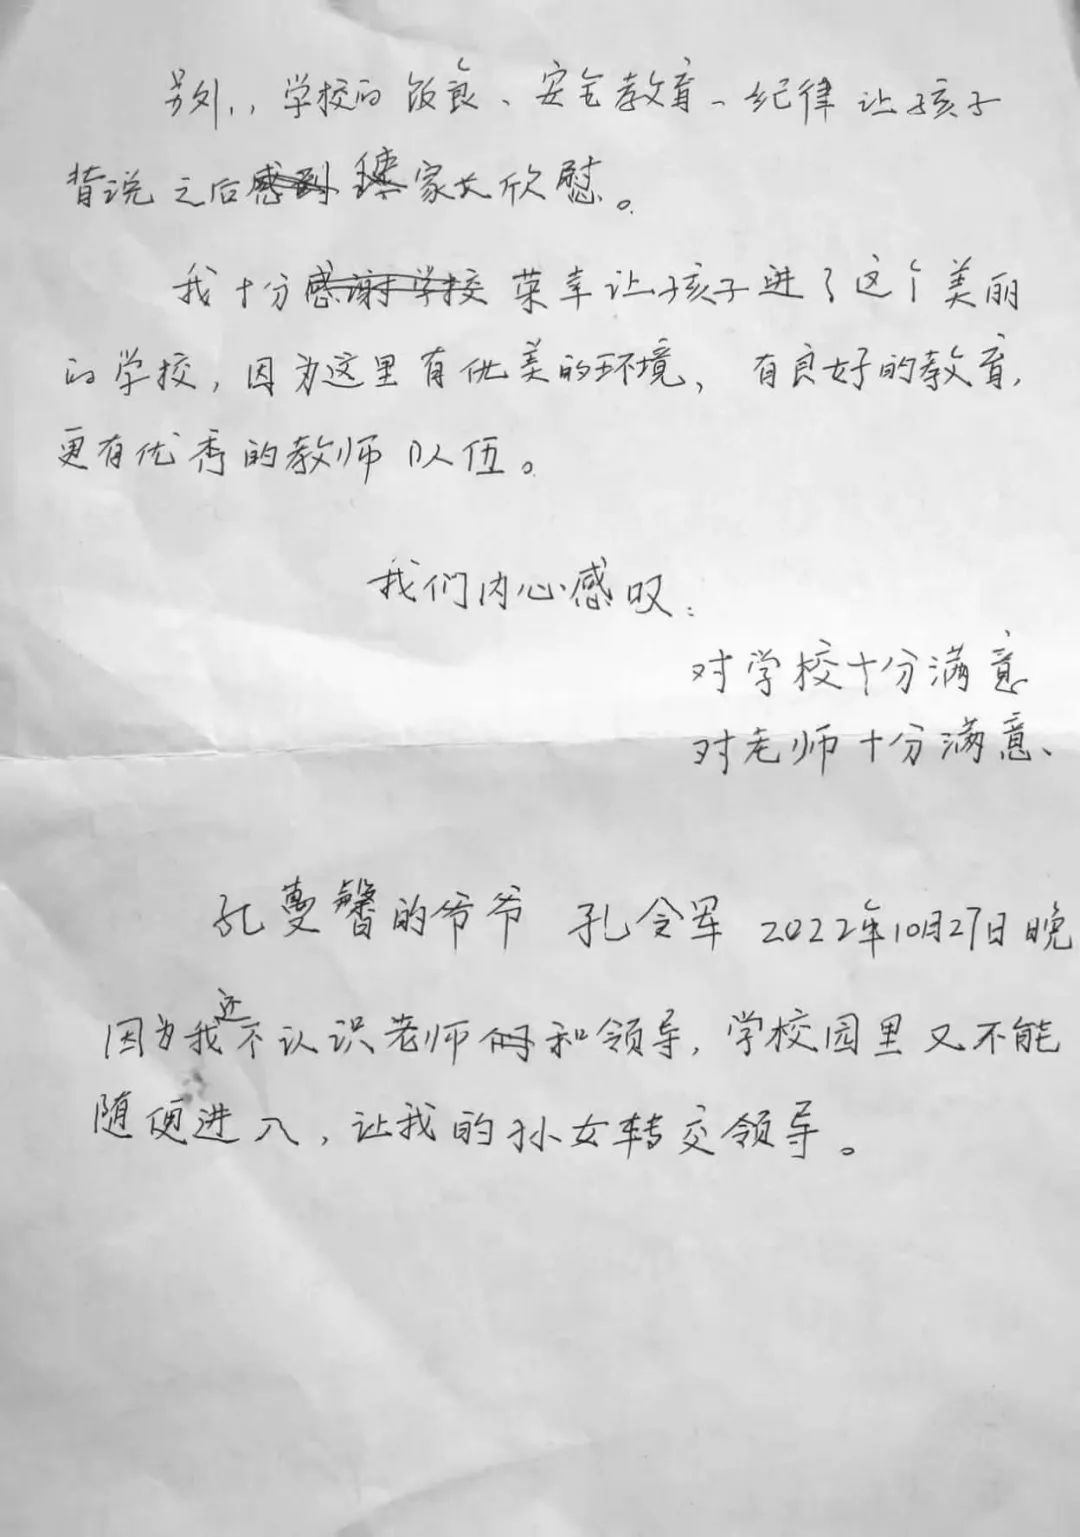 另外,，学校的饭食、安全教育、纪律让孩子
背说之后感到 使家长欣慰。
我十分感谢学校 荣幸让孩子进了这个美丽
的学校，因为这里有优美的环境，有良好的教育，
更有优秀的教师队伍。
我们内心感叹：
对学校十分满意
对老师十分满意、
孔蔓馨的爷爷 孔令军 2022年10月27日晚
因为我还不认识老师和领导，学校园里又不能
随便进入，让我的孙女转交领导。